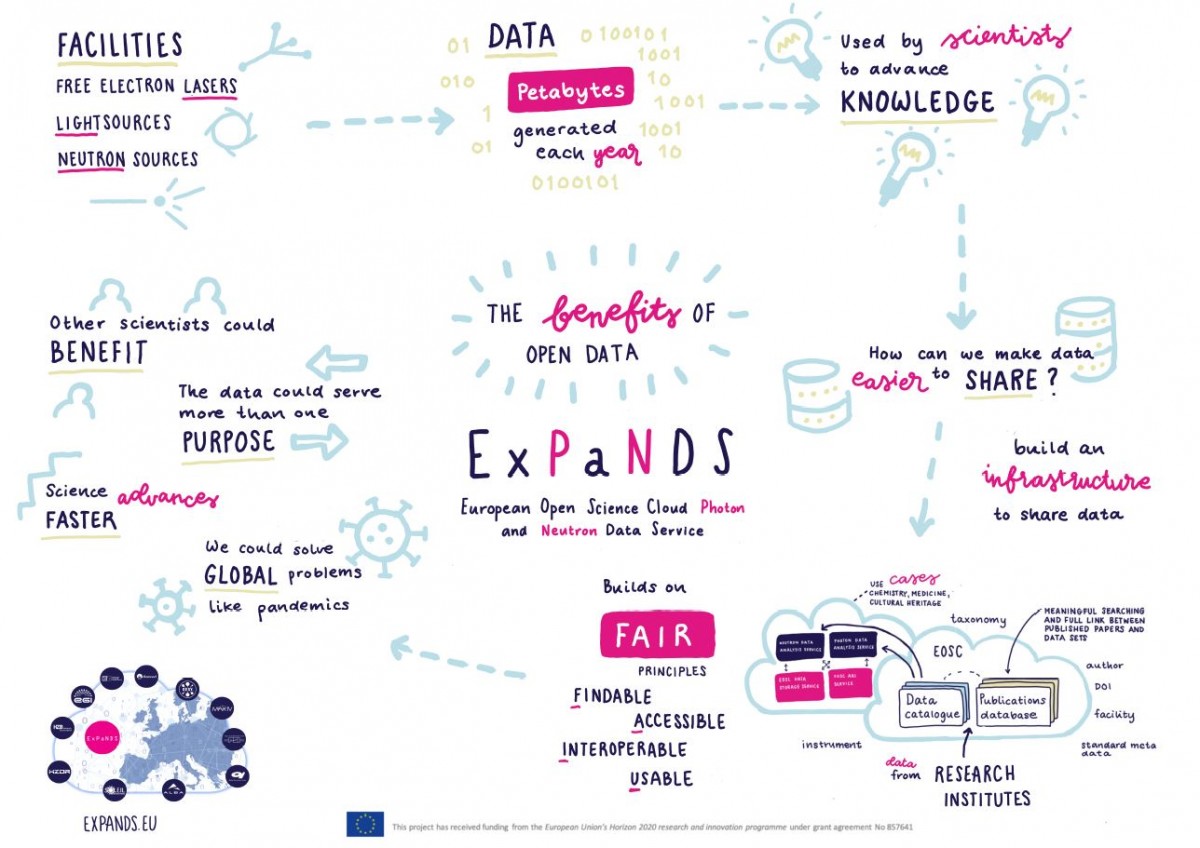 FACILITIES
FREE ELECTRON LASERS
LIGHTSOURCES
NEUTRON SOURCES
01 DATA 0100101
1001
010 Petabytes 10
1 1001
generated 1001
01 each year 10
0100101
Used by scientists
to advance
KNOWLEDGE
THE benefits OF
OPEN DATA
ExPaNDS
European Open Science Cloud Photon
and Neutron Data Service
How can we make data
easier to SHARE?
build an
infrastructure
to share data
USE cases
CHEMISTRY, MEDICINE,
CULTURAL HERITAGE
taxonomy
MEANINGFUL SEARCHING
AND FULL LINK BETWEEN
PUBLISHED PAPERS AND
DATA SETS
EOSC
NEUTRON DATA
ANALYSIS SERVICE
PHOTON DATA
ANALYSIS SERVICE
EOSC DATA
STORAGE SERVICE
EOSC AAI
SERVICE
Data
catalogue
Publications
database
author
DOI
facility
standard meta
data
instrument
data
from RESEARCH
INSTITUTES
Builds on
FAIR
PRINCIPLES
FINDABLE
ACCESSIBLE
INTEROPERABLE
USABLE
Other scientists could
BENEFIT
The data could serve
more than one
PURPOSE
Science advances
FASTER
We could solve
GLOBAL problems
like pandemics
egi
MAXIV
ExPaNDS
HZB
HZDR
SOLEIL
ALBA
EXPANDS.EU
This project has received funding from the European Union's Horizon 2020 research and innovation programme under grant agreement No 857641